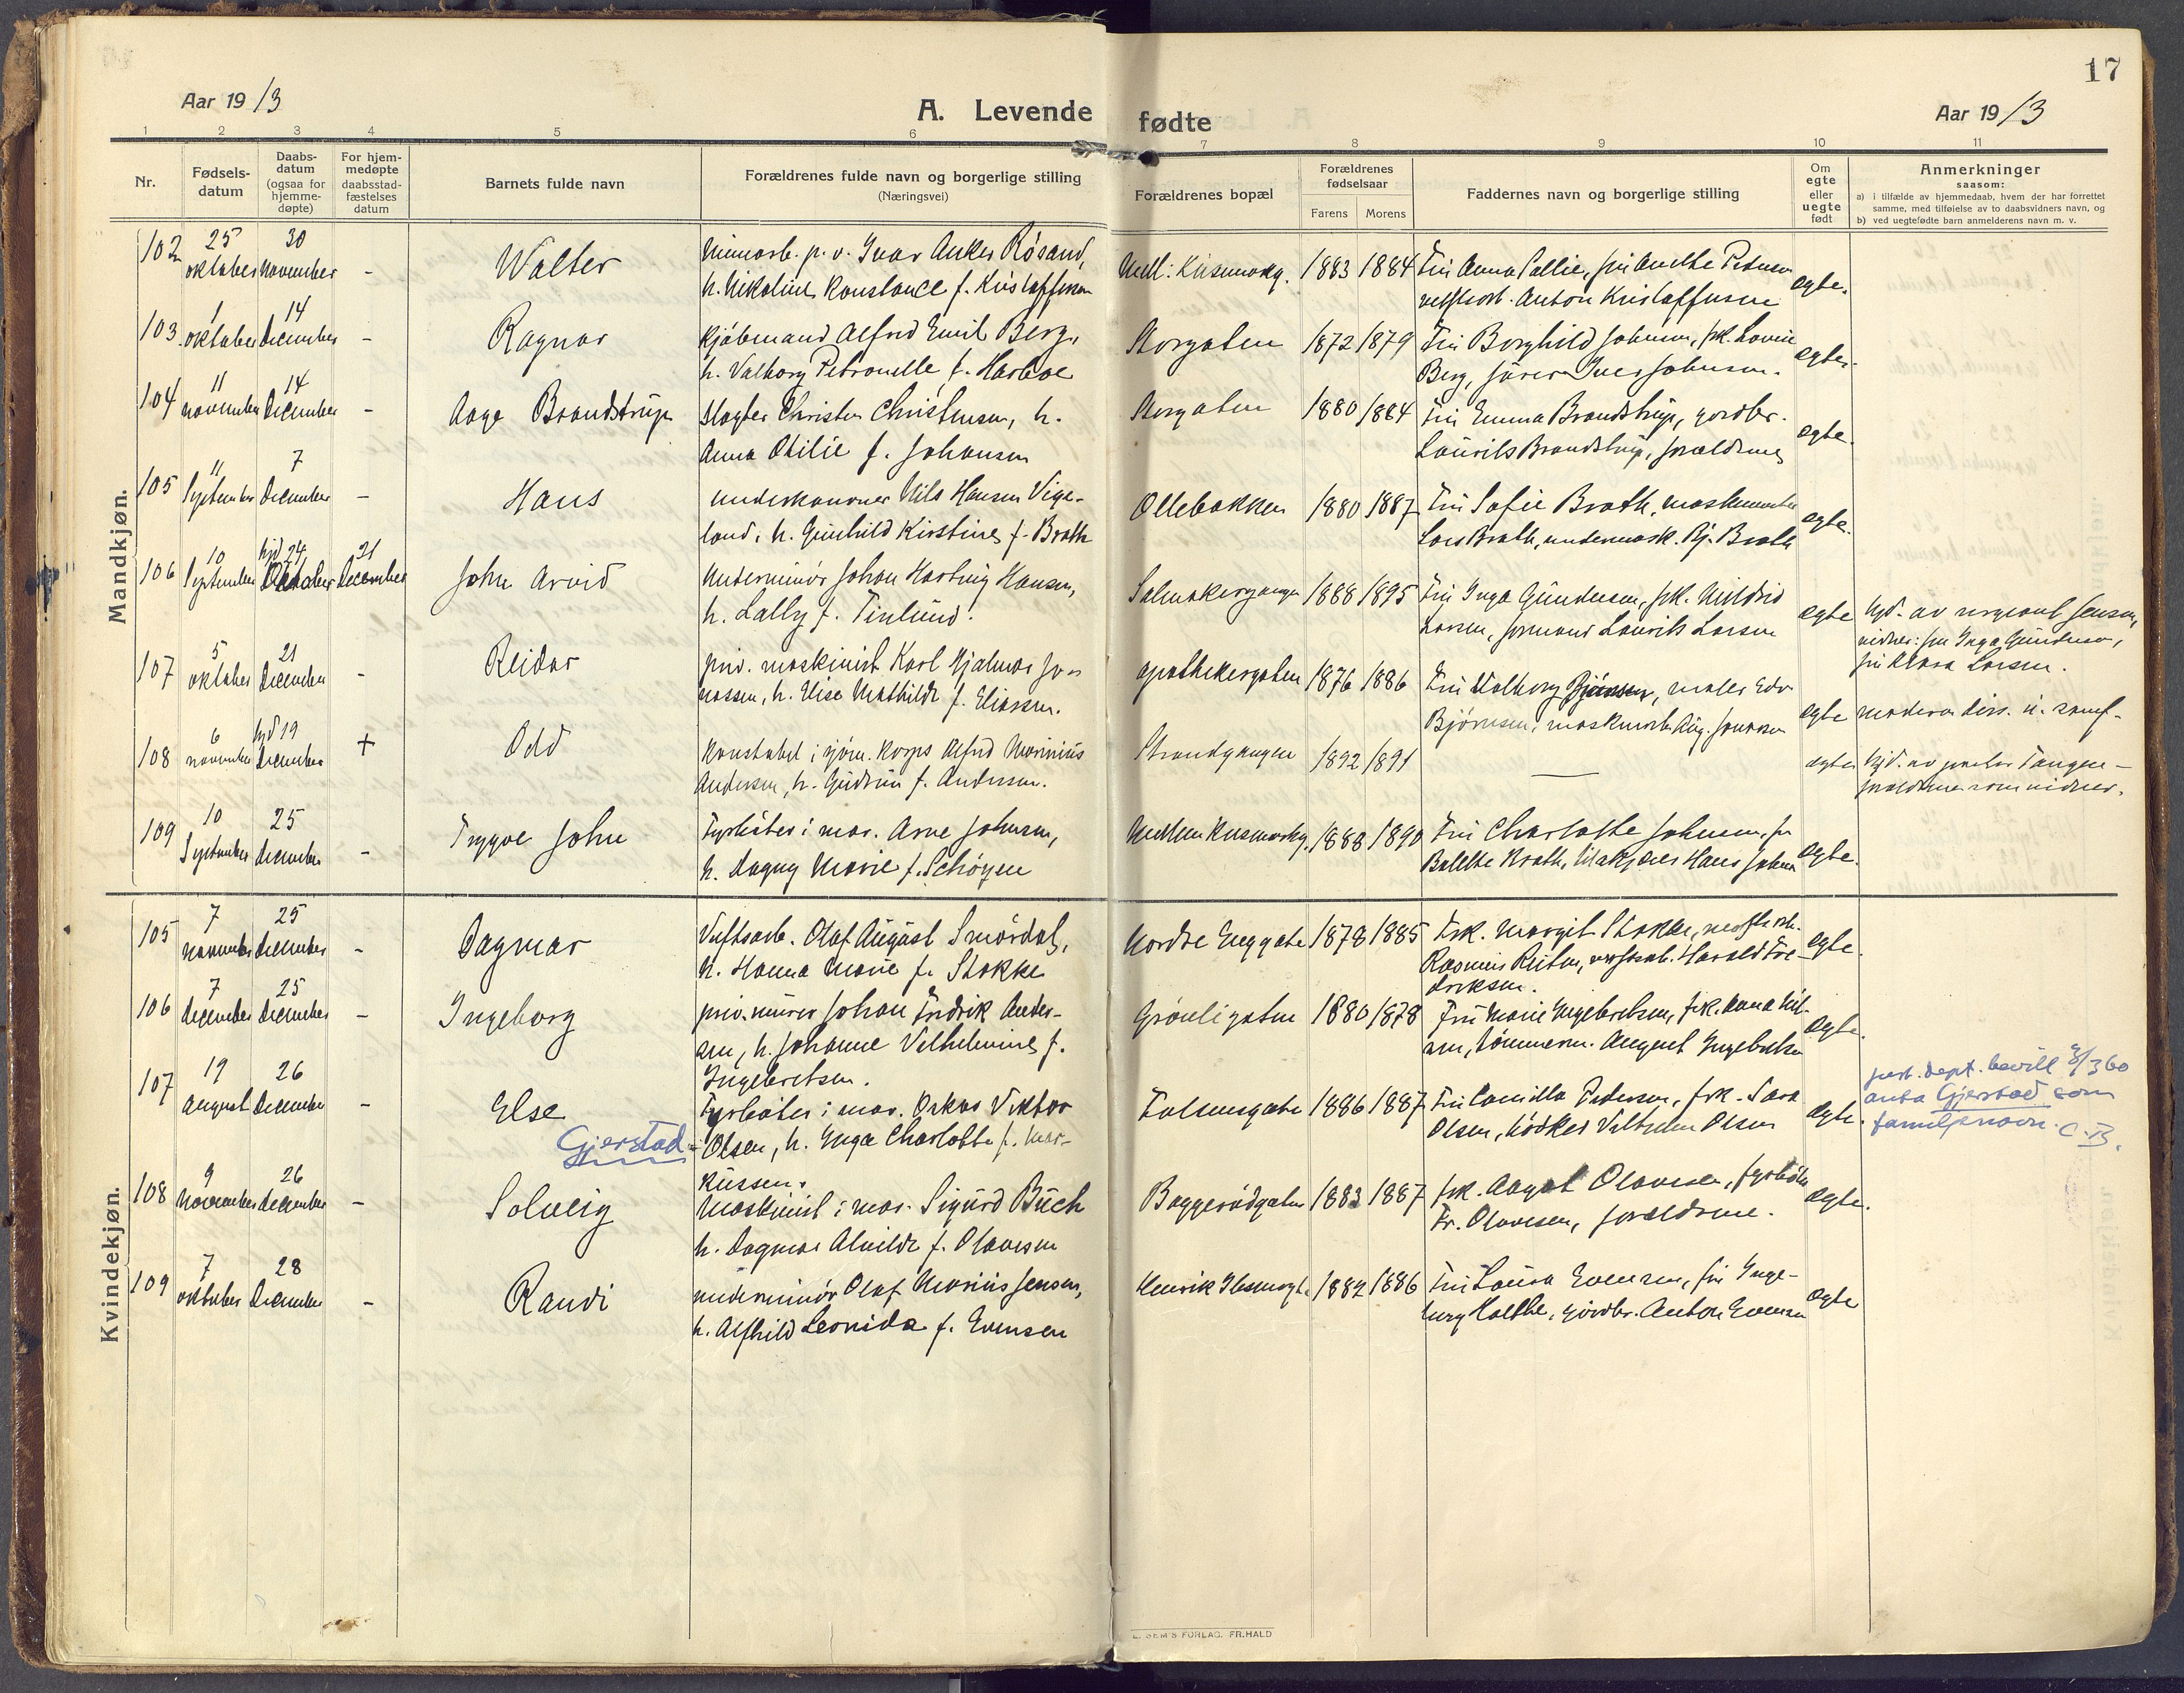 17
Aar 1913
A. Levende
fødte
Aar 1913
1 2 3 4 5 6 7 8 9 10 11
Nr.
Fødsels-
datum
Daabs-
datum
(ogsaa for
hjemme-
døpte)
For hjem-
medøpte
daabsstad-
fæstelses
datum
Barnets fulde navn
Forældrenes fulde navn og borgerlige stilling
(Næringsvei)
Forældrenes bopæl
Forældrenes
fødselsaar
Farens Morens
Faddernes navn og borgerlige stilling
Om
egte
eller
uegte
født
Anmerkninger
saasom:
a) i tilfælde av hjemmedaab, hvem der har forrettet
samme, med tilføielse av to daabsvidners navn, og
b) ved uegtefødte barn anmelderens navn m. v.
Mandkjøn.
102 25 oktober 30 november - Walter
Ivar Anker Røsand,
h. Nikoline Konstance f. Kristoffersen
1883 1884 Fru Anna Pallie, fru Anette Pedersen
Anton Kristoffersen egte.
103. 1 oktober 14 december - Ragnar
Kjøbmand Alfred Emil Berg,
h. Valborg Petronelle f. Harboe
Storgaten 1872 1879 Fru Borghild Johnsen, frk. Lovise
Berg, Iver Johnsen. egte.
104 11 november 14 december - Aage Brandstrup
Slagter Christen Christensen, h.
Anna Otilie f. Johansen
Storgaten 1880 1884 Fru Emma Brandstrup, gordbr.
Laurits Brandstrup, forældrene egte.
105 11 september 7 december - Hans
underkanoner Nils Hansen Vige-
land, h. Gunhild Kirstine f. Brath
Ollebakken 1880 1887 Fru Sofie Brath,
Lars Brath, undermask. Bj. Brath egte.
106 10 september hjd 24 oktober 21 december John Arvid
Underminør Johan Hartvig Hansen,
h. Lally f. Tinlund.
Salmakergangen 1888 1895 Fru Inga Gundersen, frk. Mildrid
Larsen, formand Laurits Larsen egte
hjd. av sergeant Jensen,
vidner: fru Inga Gundersen,
fru Klara Larsen.
107 5 oktober 21 december - Reidar
priv. maskinist Karl Hjalmar Jo-
nassen, h. Elise Mathilde f. Eliassen.
Apothekergaten 1876 1886 Fru Valborg Bjørnsen, maler Edv.
Bjørnsen, Aug. Jonassen egte moderen diss. u. samf.
108 6 november hjd 19 december + Odd
Konstabel i sjøm. korps Alfred Marinius
Andersen, h. Gudrun f. Andersen.
Strandgangen 1892 1891 — egte hjd. av Tangen -
forældrene som vidner.
109 10 september 25 december - Trygve John
Fyrbøter i mar. Arne Johnsen,
h. Dagny Marie f. Schøyen
1888 1890 Fru Charlotte Johnsen, fru
Hans Johnsen egte.
Kvindekjøn.
105 7 november 25 december - Dagmar
Verftsarb. Olaf August Smørdal,
h. Hanna Marie f. Stokke
Nordre Enggate 1878 1885 Frk. Margit Stokke, verftsarb.
Harald Fre-
driksen. egte.
106 7 december 25 december - Ingeborg
priv. murer Johan Fredrik Ander-
sen, h. Johanne Vilhelmine f.
Ingebretsen.
Grønligaten 1880 1878 Fru Marie Ingebretsen, frk. Anna Nil-
sen, tømmerm. August Ingebretsen egte.
107 19 august 26 december - Else
Gjerstad
Fyrbøter i mar. Oskar Viktor
Olsen, h. Inga Charlotte f. Mar-
kussen.
Falsensgate 1886 1887 Fru Camilla Pedersen, frk. Sara
Olsen, bødker Vilhelm Olsen egte.
just. dept. bevill 8/3 60
anta Gjerstad som
familienavn. C.B.
108 9 november 26 december - Solveig
Maskinist i mar. Sigurd Buch
h. Dagmar Alvilde f. Olavesen
Baggerødgaten 1883 1887 frk. Aagot Olavesen, fyrbøter
Fr. Olavesen, forældrene. egte.
109 7 oktober 28 december - Randi
underminør Olaf Marius Jensen,
h. Alfhild Leonida f. Evensen
Henrik Ibsensgt. 1882 1886 Fru Laura Evensen, fru Inge-
borg Holthe, gordbr. Anton Evensen egte
E. SEM'S FORLAG. FR.HALD